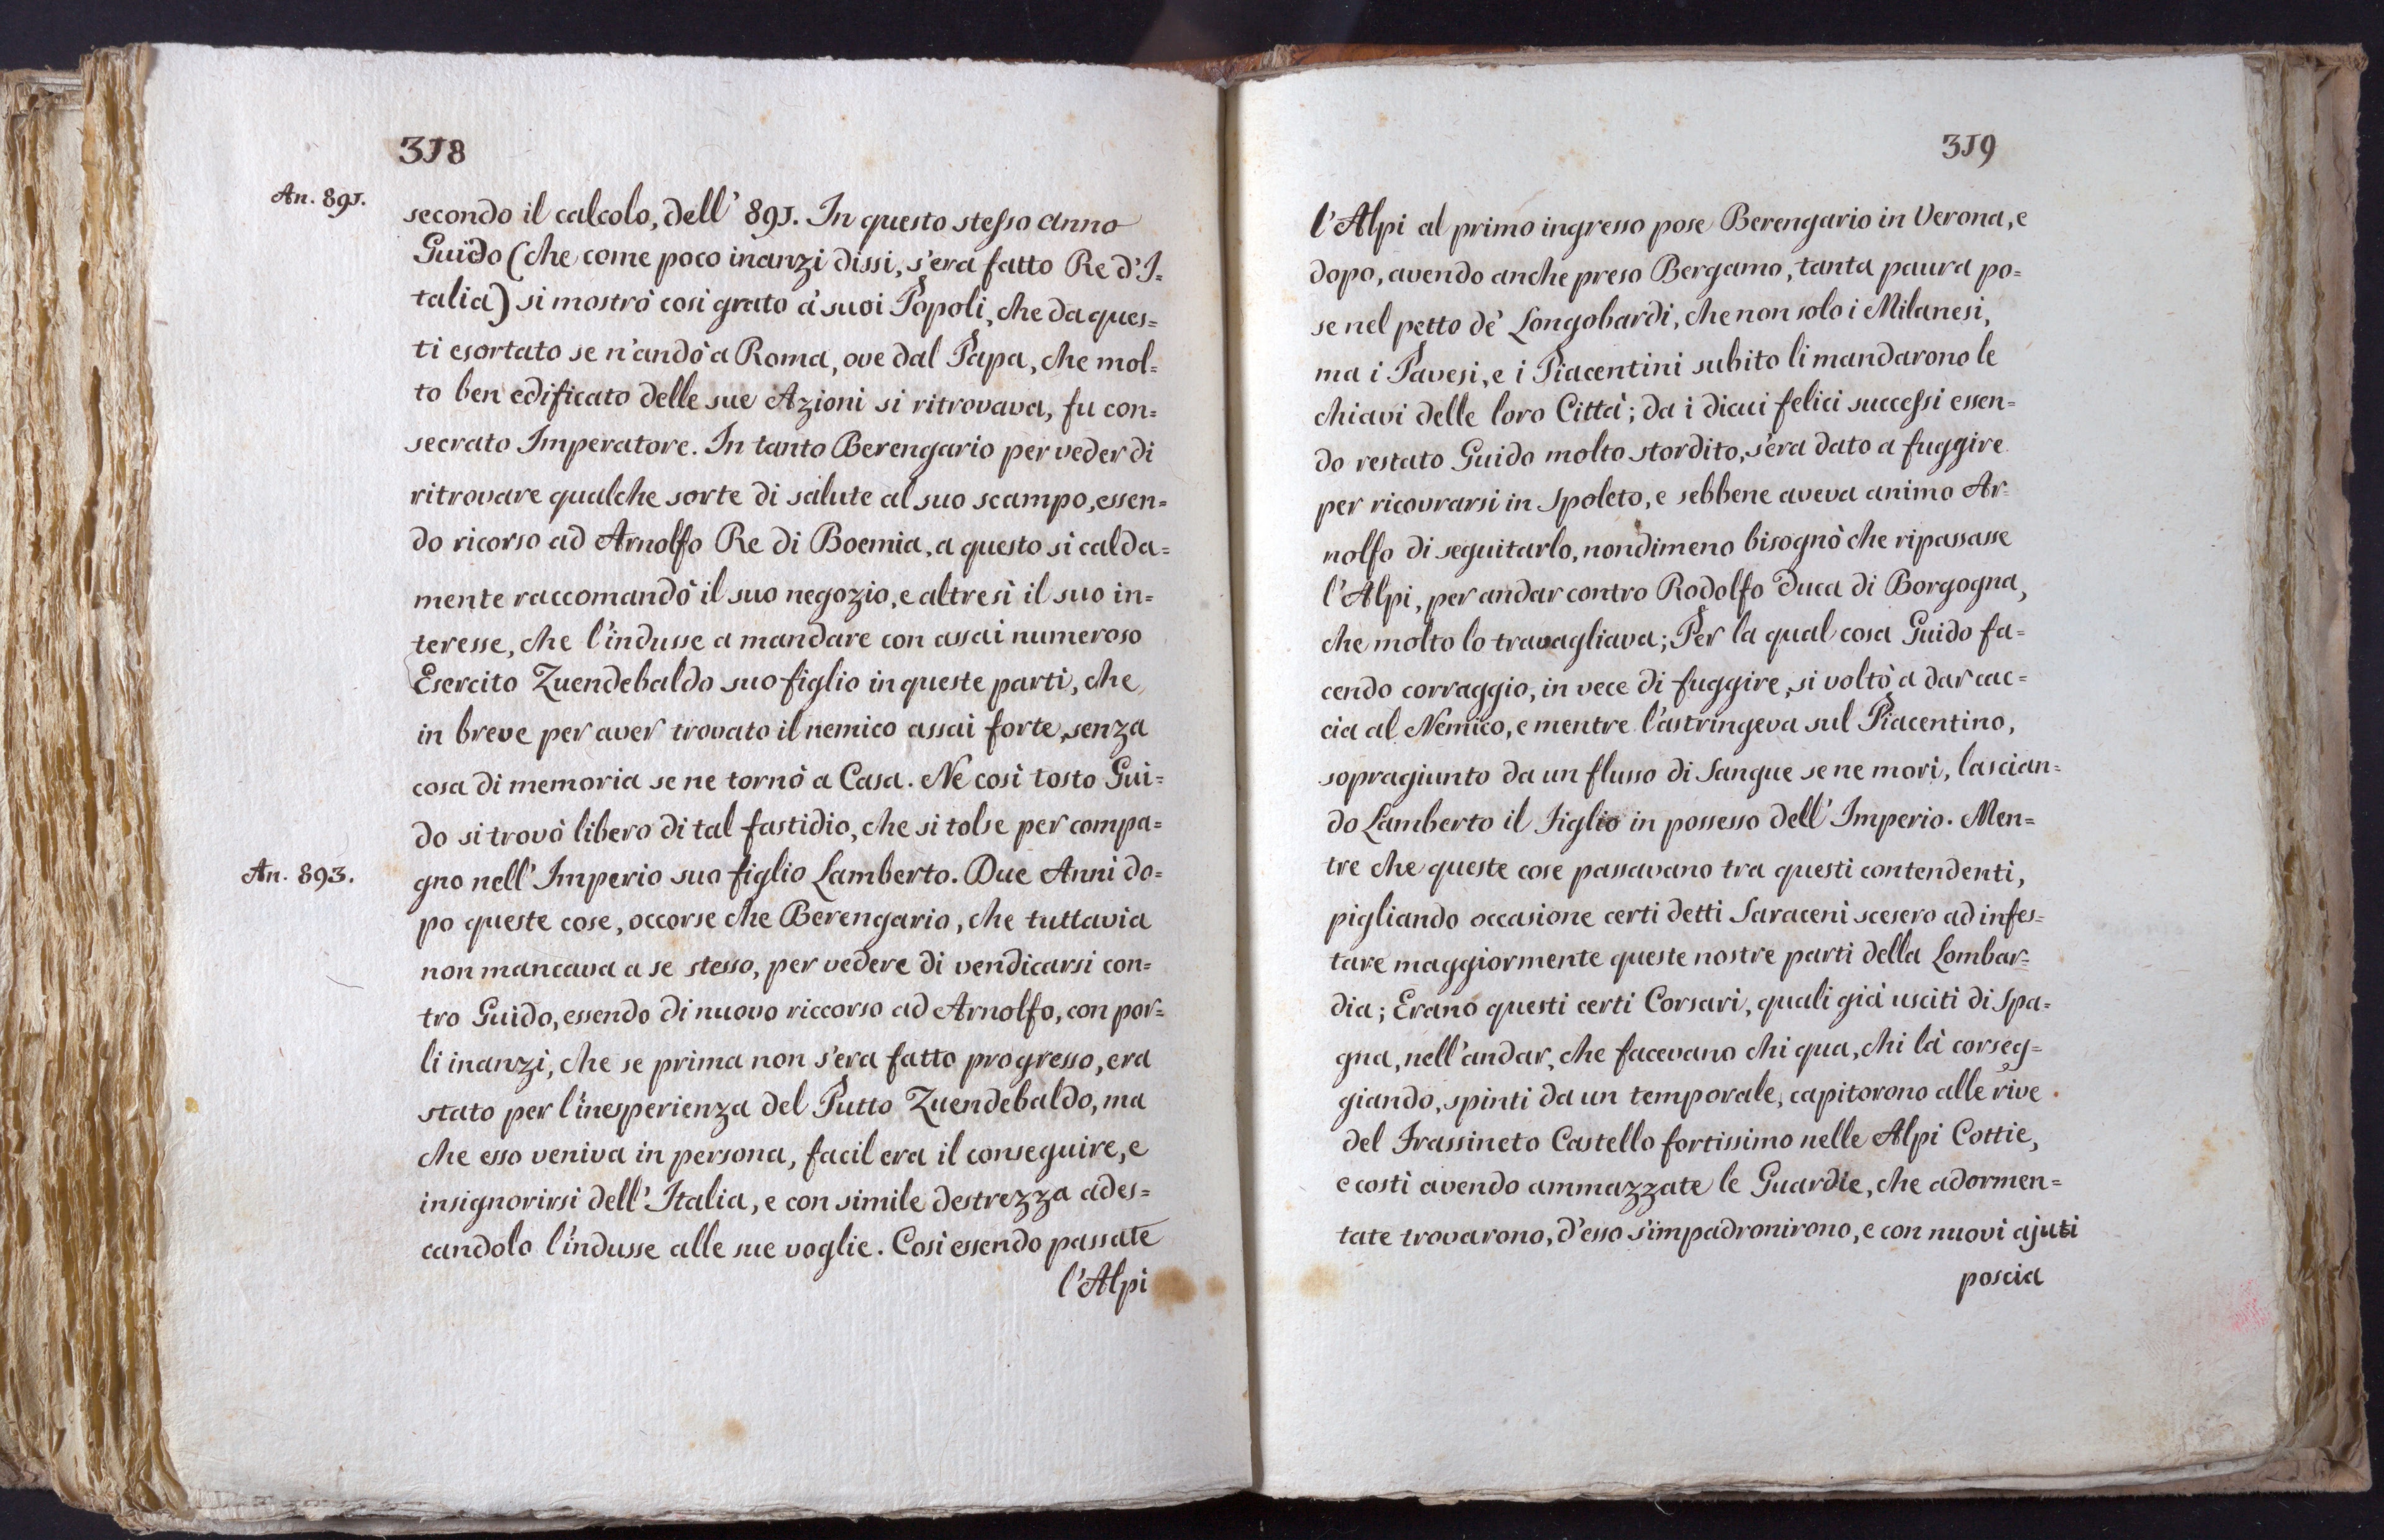 318
An. 891.
secondo il calcolo, dell' 891. In questo stesso anno
Guido (che come poco inanzi dissi, s'era fatto Re d'I=
talia) si mostrò così grato a' suoi Popoli, che da ques=
ti esortato se n'andò a Roma, ove dal Papa, che mol=
to ben edificato delle sue Azioni si ritrovava, fu con=
secrato Imperatore. In tanto Berengario per veder di
ritrovare qualche sorte di salute al suo scampo, essen=
do ricorso ad Arnolfo Re di Boemia, a questo si calda=
mente raccomandò il suo negozio, e altresì il suo in=
teresse, che l'indusse a mandare con assai numeroso
Esercito Zuendebaldo suo figlio in queste parti, che
in breve per aver trovato il nemico assai forte, senza
cosa di memoria se ne tornò a Casa. Ne così tosto Gui=
do si trovò libero di tal fastidio, che si tolse per compa=
An. 893.
gno nell' Imperio suo figlio Lamberto. Due Anni do=
po queste cose, occorse che Berengario, che tuttavia
non mancava a se stesso, per vedere di vendicarsi con=
tro Guido, essendo di nuovo riccorso ad Arnolfo, con por=
li inanzi, che se prima non s'era fatto progresso, era
stato per l'inesperienza del Putto Zuendebaldo, ma
che esso veniva in persona, facil era il conseguire, e
insignorirsi dell' Italia, e con simile destrezza ades=
candolo l'indusse alle sue voglie. Così essendo passate
l'Alpi
319
l'Alpi al primo ingresso pose Berengario in Verona, e
dopo, avendo anche preso Bergamo, tanta paura po=
se nel petto de' Longobardi, che non solo i Milanesi,
ma i Pavesi, e i Piacentini subito li mandarono le
chiavi delle loro Città; da i dicui felici successi essen=
do restato Guido molto stordito, s'era dato a fuggire
per ricovrarsi in Spoleto, e sebbene aveva animo Ar=
nolfo di seguitarlo, nondimeno bisognò che ripassasse
l'Alpi, per andar contro Rodolfo Duca di Borgogna,
che molto lo travagliava; Per la qual cosa Guido fa=
cendo corraggio, in vece di fuggire, si voltò a dar cac=
cia al Nemico, e mentre l'astringeva sul Piacentino,
sopragiunto da un flusso di Sangue se ne morì, lascian=
do Lamberto il Figlio in possesso dell' Imperio. Men=
tre che queste cose passavano tra questi contendenti,
pigliando occasione certi detti Saraceni scesero ad infes=
tare maggiormente queste nostre parti della Lombar=
dia; Erano questi certi Corsari, quali già usciti di Spa=
gna, nell'andar, che facevano chi qua, chi là corseg=
giando, spinti da un temporale, capitorono alle rive
del Frassineto Castello fortissimo nelle Alpi Cottie,
e costì avendo ammazzate le Guardie, che adormen=
tate trovarono, d'esso s'impadronirono, e con nuovi ajuti
poscia